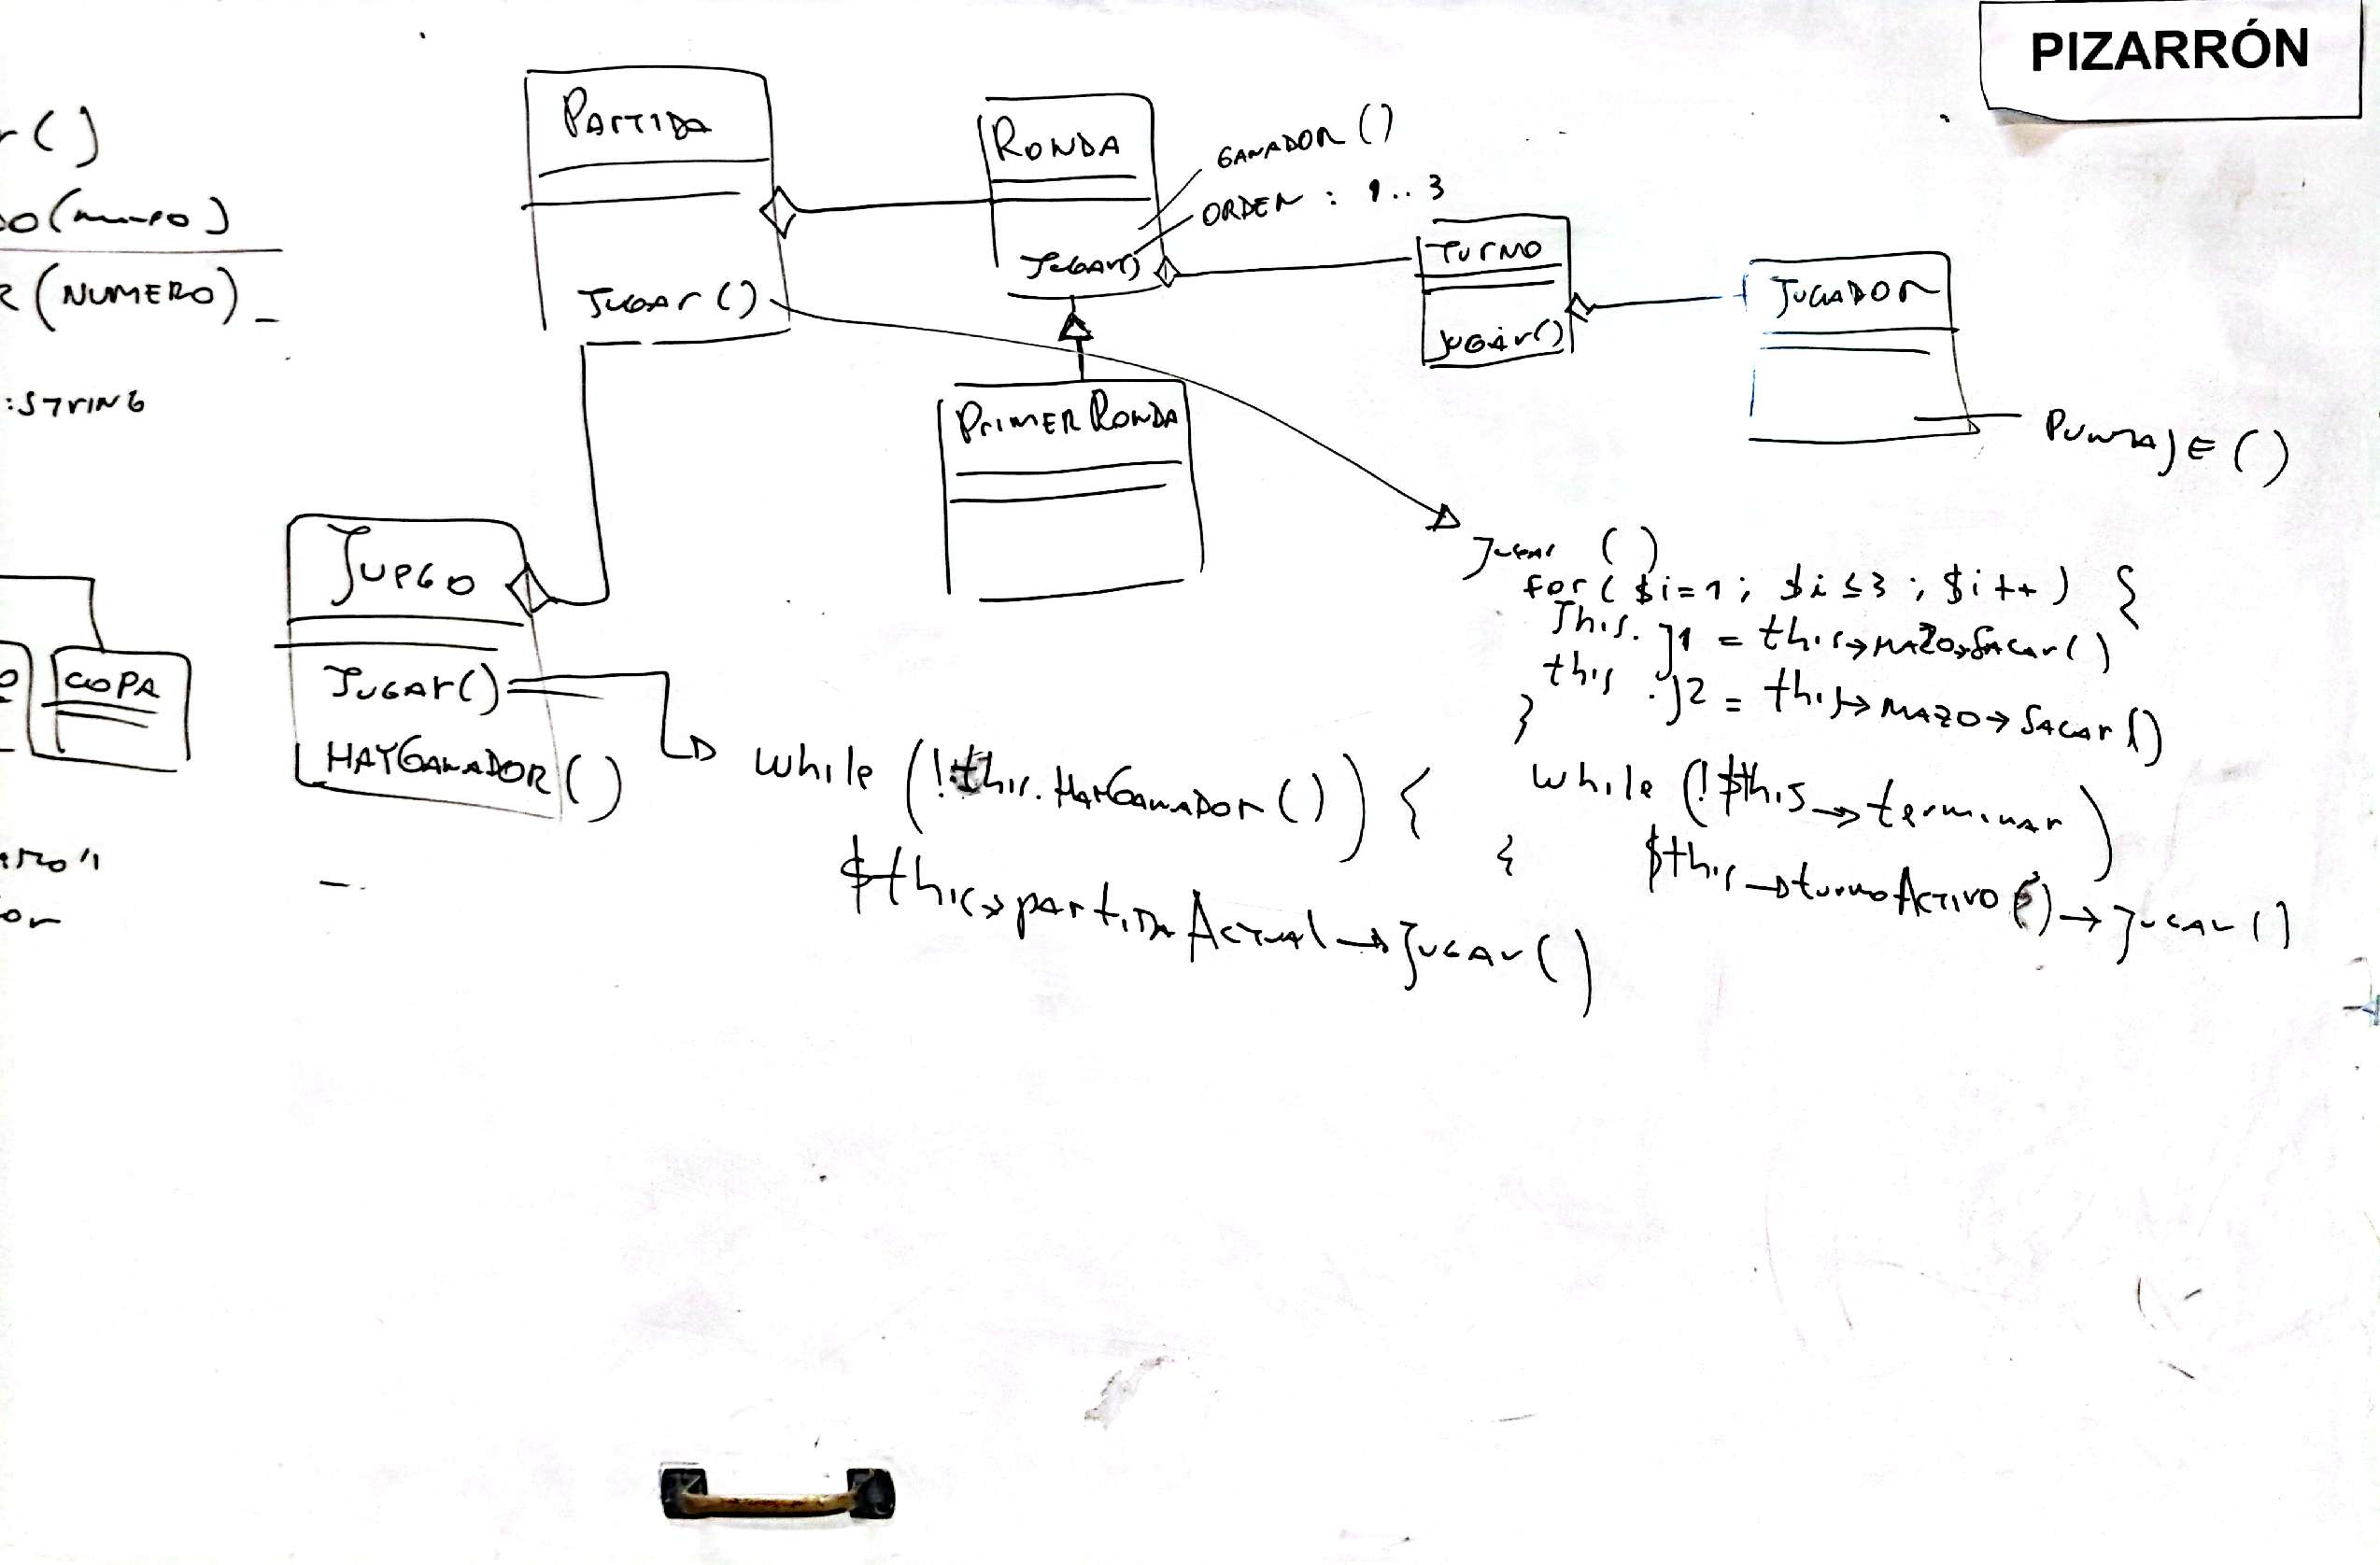 PIZARRÓN
PARTIDA
JUGAR ()
RONDA
JUGAR()
GANADOR ()
ORDEN : 1..3
TURNO
JUGAR()
JUGADOR
PUNTAJE ()
PRIMER RONDA
r ()
R (NUMERO)
:STRING
COPA
JUEGO
JUGAR()
HAYGANADOR ()
while (!this.HAYGANADOR ()) {
$this→partidaActual→JUGAR ()
JUGAR ()
for ( $i=1 ; $i ≤ 3 ; $i++ ) {
This. j1 = this→MAZO→SACAR ()
this . j2 = this→MAZO→SACAR ()
}
while (! $this→terminar )
{ $this→turnoActivo ()→JUGAR ()
or